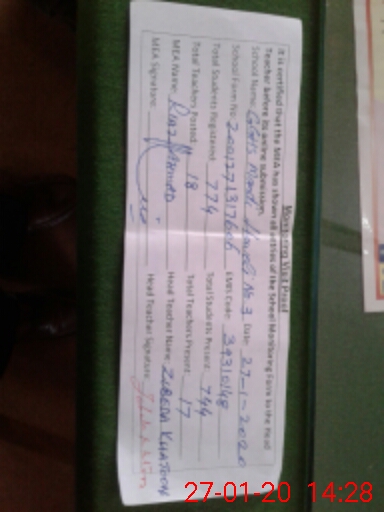 Monitoring Visit Proof
It is certified that the MEA has shown all entries of the School Monitoring Form to the Head
Teacher before its online submission.
School Name: GGHS Mandi No. 3 Date: 27-1-2020
School Form No: EMIS Code: 39310148
Total Students Registered: 774 Total Students Present: 744
Total Teachers Posted: 18 Total Teachers Present: 17
MEA Name: RIAZ AHMAD Head Teacher Name: ZUBEDA KHATOON
MEA Signature: Head Teacher Signature:
27-01-20 14:28